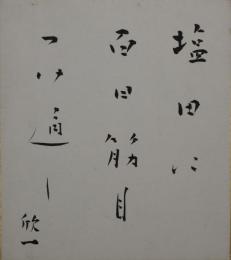 塩田に
百日筋目
つけ通し
欣一